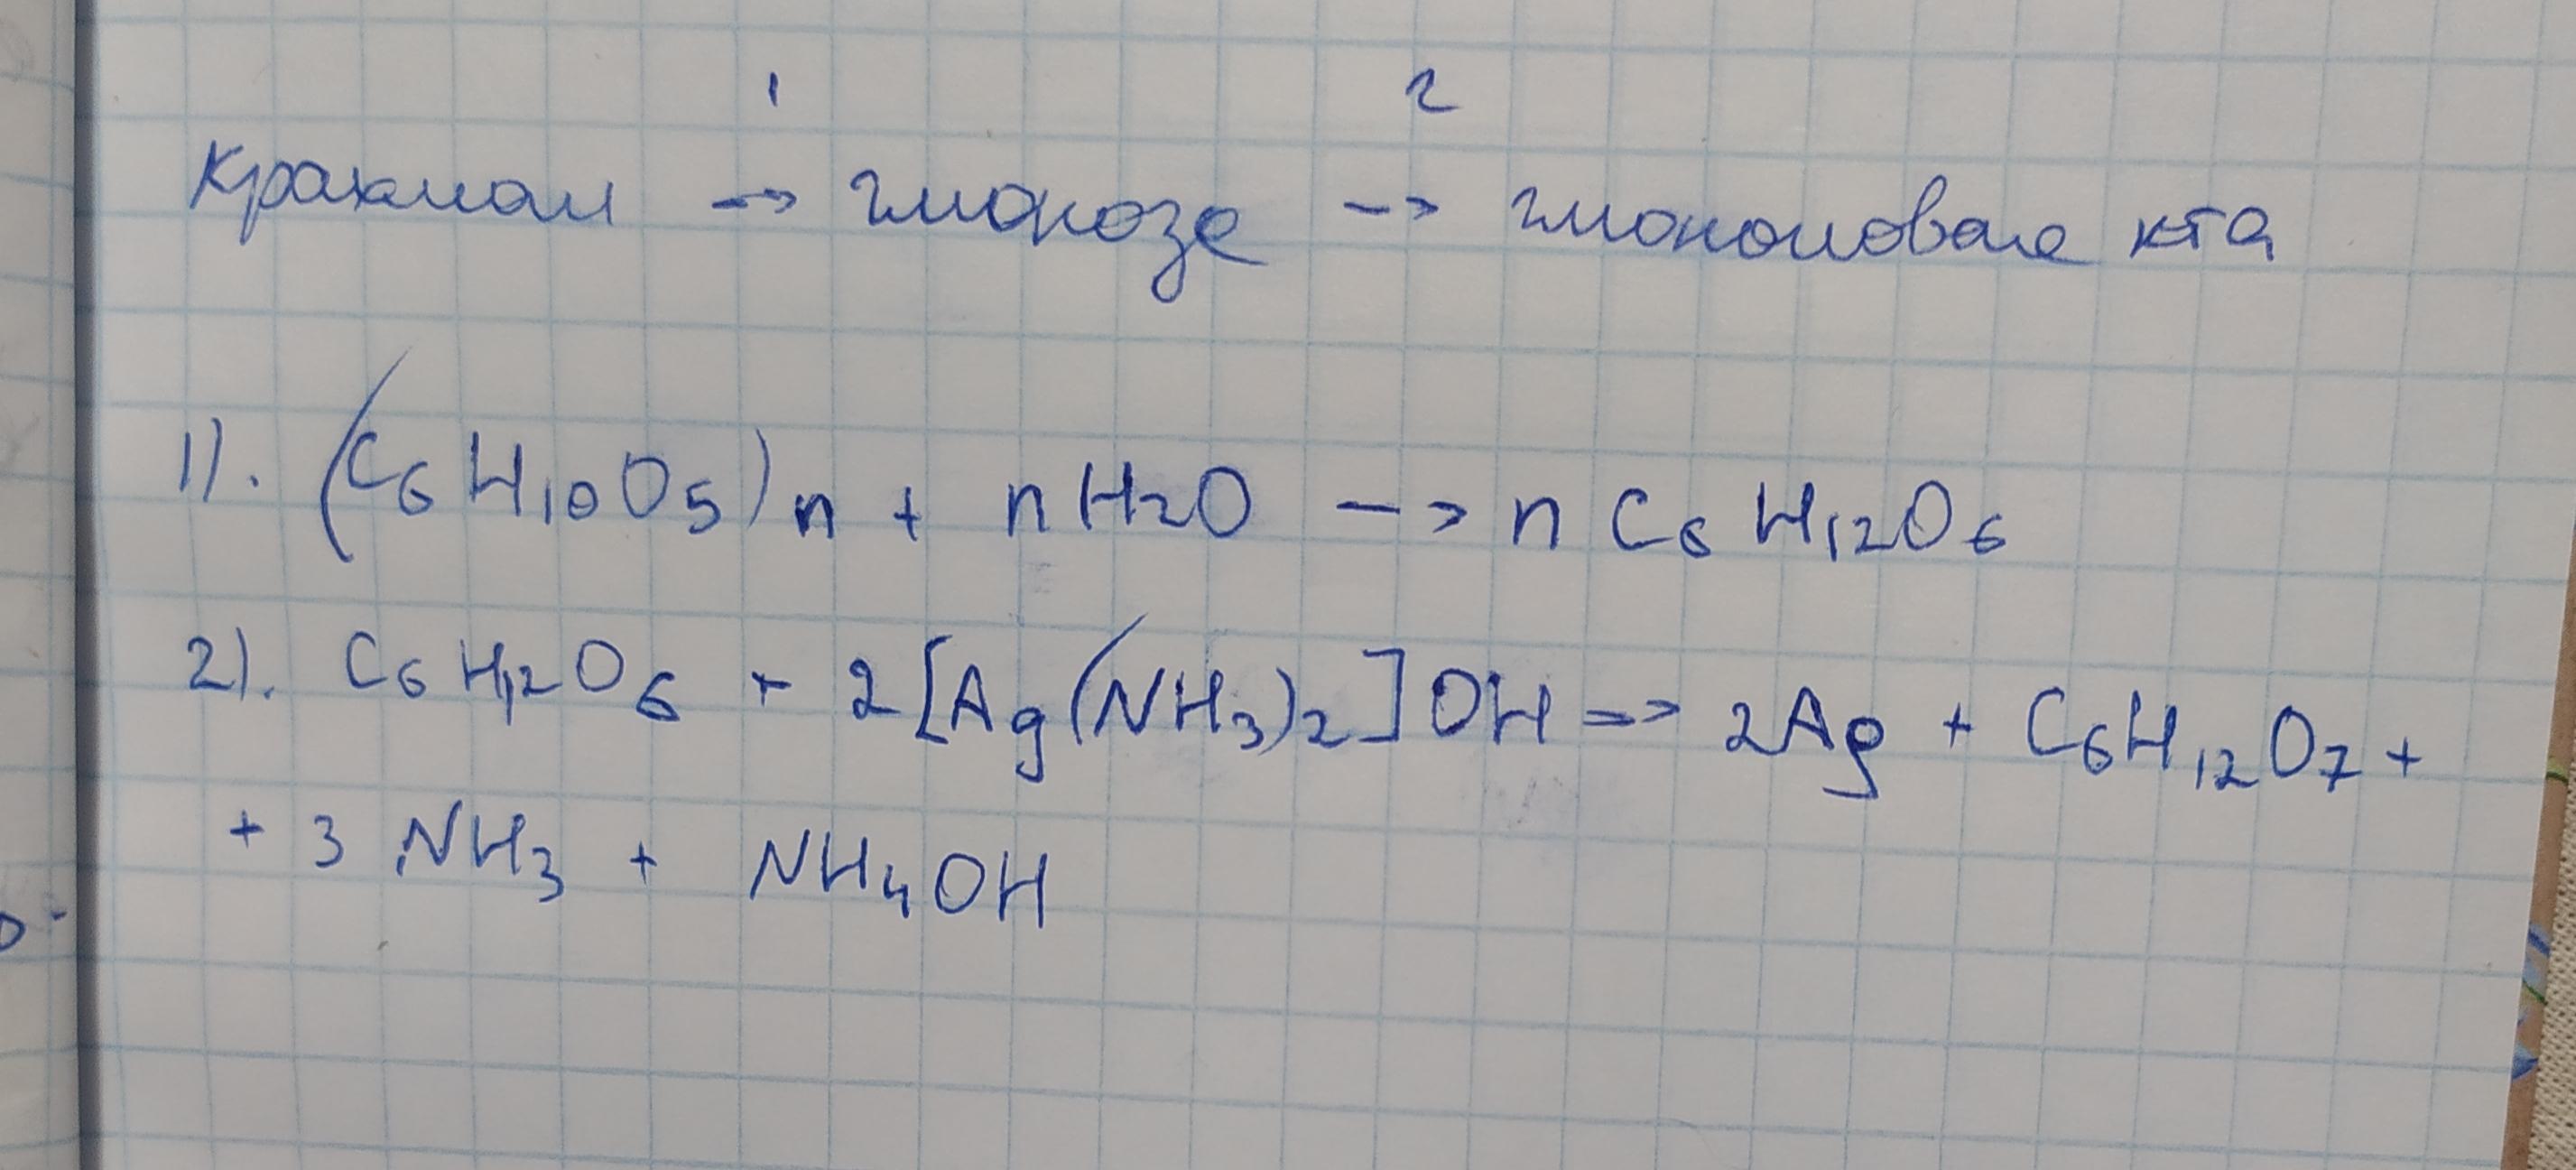 1 2
Крахмал -> глюкоза -> глюконовая к-та
1). (C6H10O5)n + nH2O -> n C6H12O6
2). C6H12O6 + 2[Ag(NH3)2]OH => 2Ag + C6H12O7 +
+ 3NH3 + NH4OH